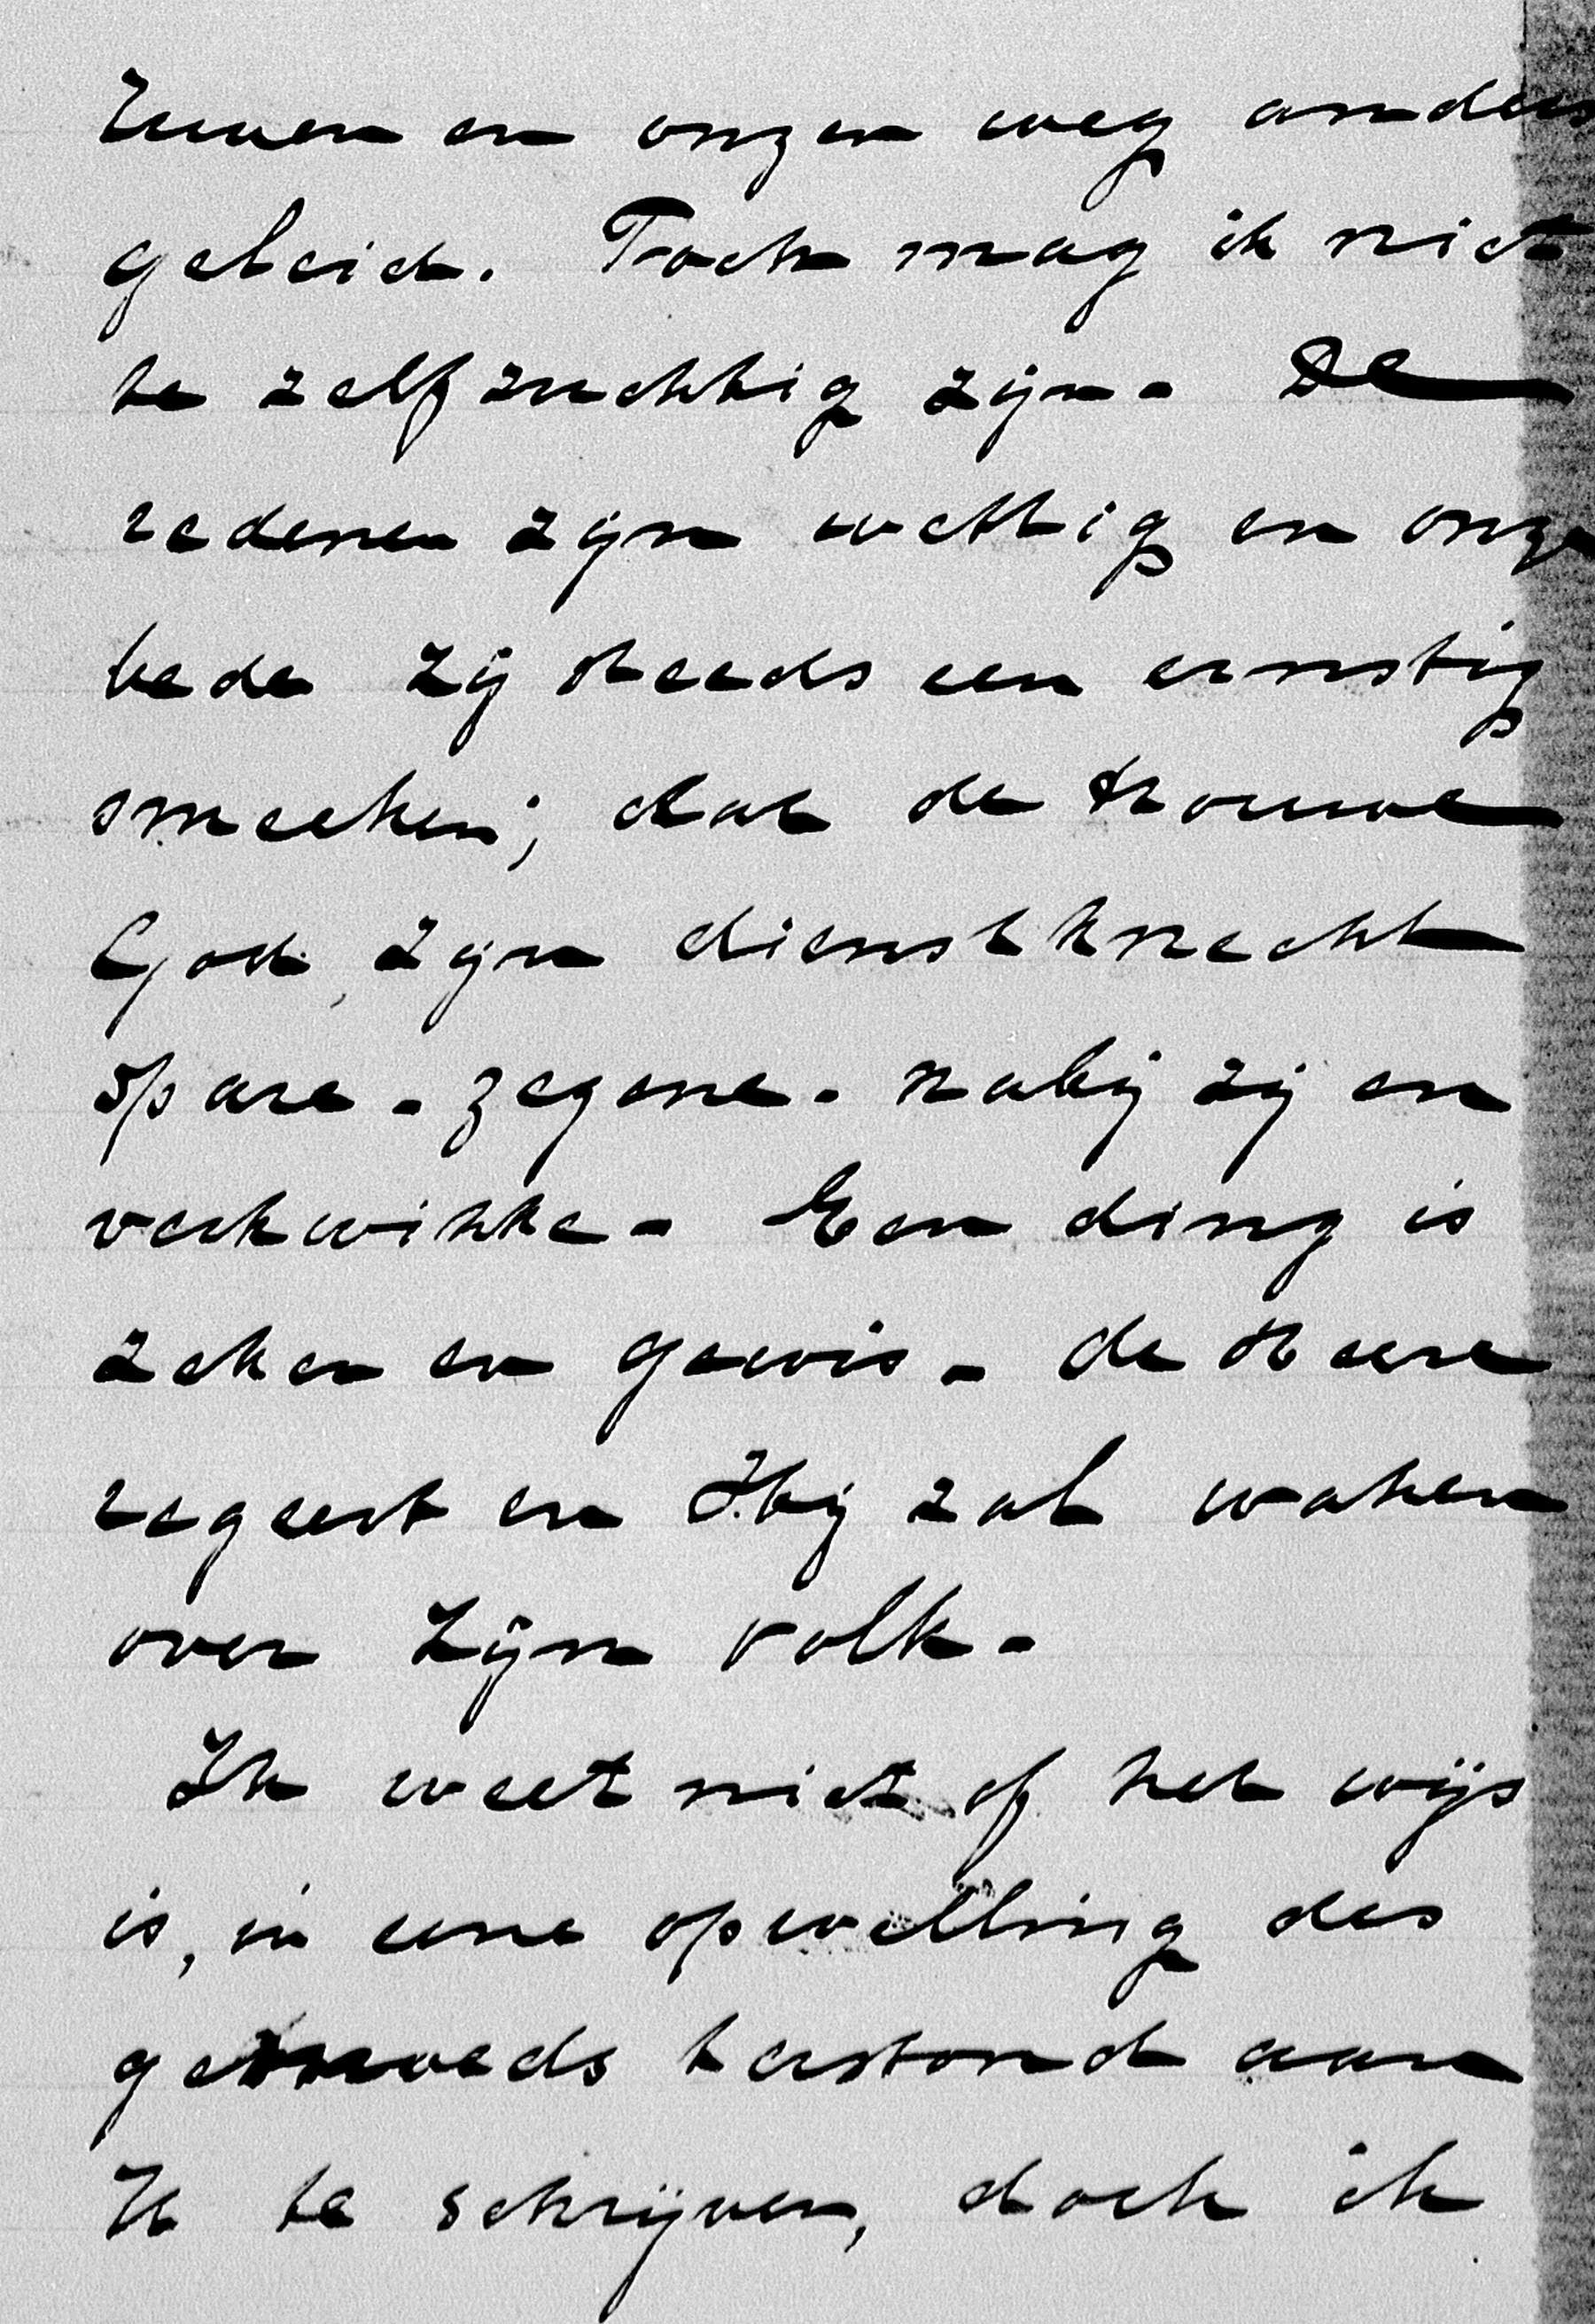 Uwen en onzen weg anders
geleid. Toch mag ik niet
te zelfzuchtig zijn. De
redenen zijn wettig en onze
bede zij steeds een ernstig
smeeken; dat de trouwe
God, zijn dienstknecht
spare. zegene. nabij zij en
verkwikke. Een ding is
zeker en gewis. de Heere
regeert en Hij zal waken
over Zijn volk.
Ik weet niet of het wijs
is, in eene opwelling des
gemoeds terstond aan
U te schrijven, doch ik